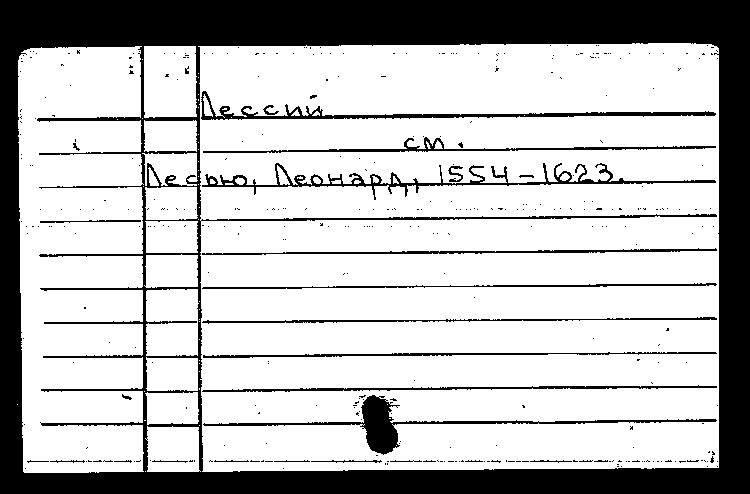 Лессий
см.
Лесью, Леонард, 1554-1623.